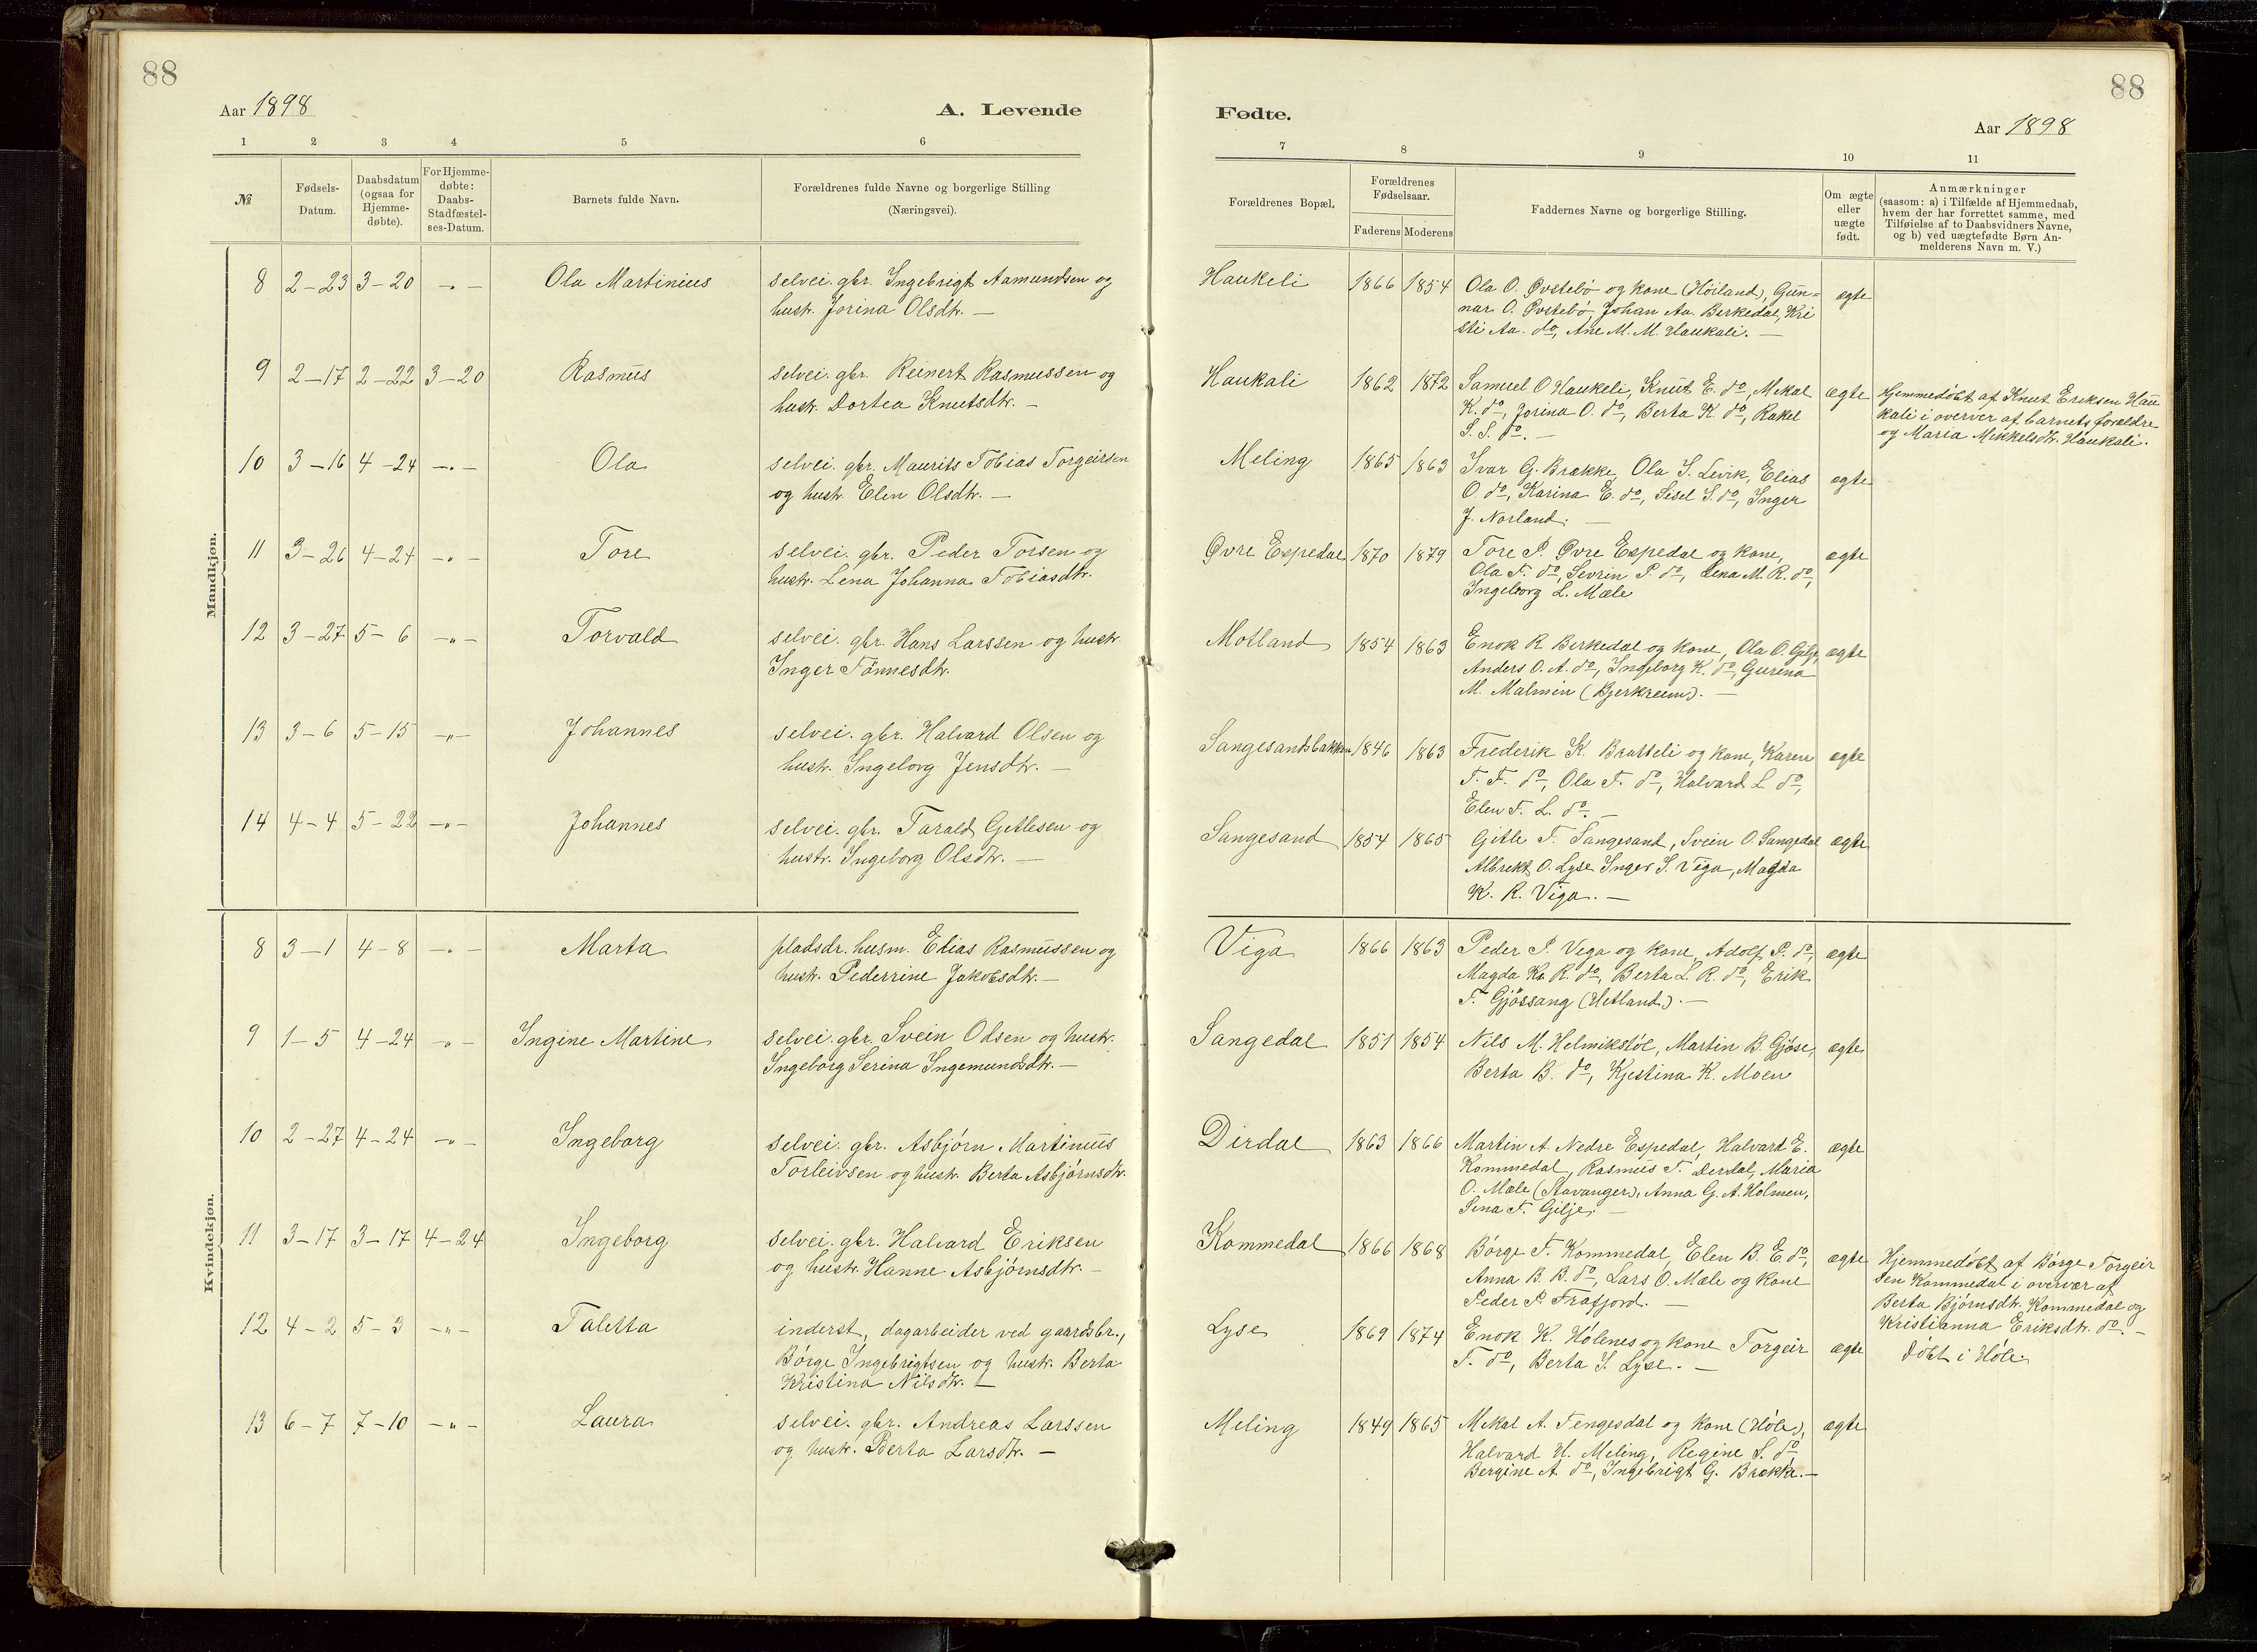 88
88
Aar 1898
A. Levende
Fødte.
Aar 1898
1 2 3 4 5 6
7 8 9 10 11
№
Fødsels-
Datum.
Daabsdatum
(ogsaa for
Hjemme-
døbte).
For Hjemme-
døbte:
Daabs-
Stadfæstel-
ses-Datum.
Barnets fulde Navn.
Forældrenes fulde Navne og borgerlige Stilling
(Næringsvei).
Forældrenes Bopæl.
Forældrenes
Fødselsaar.
Faderens Moderens
Faddernes Navne og borgerlige Stilling.
Om ægte
eller
uægte
født.
Anmærkninger
(saasom: a) i Tilfælde af Hjemmedaab,
hvem der har forrettet samme, med
Tilføielse af to Daabsvidners Navne,
og b) ved uægtefødte Børn An-
melderens Navn m. V.)
Mandkjøn.
8 2-23 3-20 -"- Ola Martinius selvei. gbr. Ingebrigt Aamundsen og
hustr. Jorina Olsdtr. —
Haukeli 1866 1854 Ola O. Øvstebø og kone (Höiland), Gun=
nar O. Øvstebø, Johan Aa. Birkedal, Kri
sti Aa. do, Ane M. M. Haukali. —
ægte
9 2-17 2-22 3-20 Rasmus selvei. gbr. Reinert Rasmussen og
hustr. Dortea Knutsdtr. —
Haukali 1862 1872 Samuel O Haukeli, Knut E. do, Mikal
K. do, Jorina O. do, Berta K. do, Rakel
S. S. do. —
ægte
Hjemmedöbt af Knut Eriksen Hau
kali i overver af barnets forældre
og Maria Mikkelsdtr. Haukali.
10 3-16 4-24 -"- Ola selvei. gbr. Maurits Tobias Torgeirsen
og hustr. Elen Olsdtr. —
Meling 1865 1863 Ivar G. Brække, Ola S. Levik, Elias
O. do, Karina E. do, Sisel S. do, Inger
J. Norland. —
ægte
11 3-26 4-24 -"- Tore selvei. gbr. Peder Torsen og
hustr. Lena Johanna Tobiasdtr.
Øvre Espedal 1870 1879 Tore P. Øvre Espedal og kone,
Ola T. do, Sevrin P. do, Lena M. R. do,
Ingeborg L. Mæle
ægte
12 3-27 5-6 -"- Torvald selvei. gbr. Hans Larssen og hustr.
Inger Tönnesdtr.
Motland 1854 1863 Enok R Birkedal og kone, Ola O. Gilje,
Anders O. A. do, Ingeborg K. do, Gurina
M. Malmin (Bjerkreim). —
ægte
13 3-6 5-15 -"- Johannes selvei. gbr. Halvard Olsen og
hustr. Ingeborg Jensdtr. —
Sangesandsbakken 1846 1863 Frederik K. Bratteli og kone, Karen
T. F. do, Ola F. do, Halvard L. do,
Elen F. L. do. —
ægte
14 4-4 5-22 -"- Johannes selvei. gbr. Tarald Gjetlesen og
hustr. Ingeborg Olsdtr. —
Sangesand 1854 1865 Gjitle T. Sangesand, Svein O. Sangedal
Albrekt O. Lyse Inger S. Viga, Magda
K. R. Viga. —
ægte
Kvindekjøn.
8 3-1 4-8 -"- Marta pladsdr. husm. Elias Rasmussen og
hustr. Pederrine Jakobsdtr. —
Viga 1866 1863 Peder P. Vega og kone, Adolf P. do,
Magda K. R. do, Berta L. R. do, Erik
T. Gjössang (Hetland). —
ægte
9 1-5 4-24 -"- Ingine Martine selvei. gbr. Svein Olsen og hustr.
Ingeborg Serina Ingemundsdtr. —
Sangedal 1851 1854 Nils M. Helmikstöl, Martin B. Gjöse,
Berta B. do, Kjestina K. Moen
ægte
10 2-27 4-24 -"- Ingeborg selvei. gbr. Asbjörn Martinius
Torleivsen og hustr. Berta Asbjörnsdtr.
Dirdal 1863 1866 Martin A. Nedre Espedal, Halvard E.
Kommedal, Rasmus T. Derdal, Maria
O. Mæle (Stavanger), Anna G. A. Holmen,
Sina T. Gilje. —
ægte
11 3-17 3-17 4-24 Ingeborg selvei. gbr. Halvard Eriksen
og hustr. Hanne Asbjörnsdtr. —
Kommedal 1866 1868 Börge T. Kommedal, Elen B. E. do,
Anna B. B. do, Lars O. Mæle og kone
Peder P. Frafjord. —
ægte
Hjemmedöbt af Börge Torgeir
sen Kommedal i overvær af
Berta Bjórnsdtr. Kommedal og
Kristianna Eriksdtr. do. —
12 4-2 5-3 -"- Taletta inderst, dagarbeider ved gaardsbr.,
Börge Ingebrigtsen og hustr. Berta
Kristina Nilsdtr. —
Lyse 1869 1874 Enok K. Hölenes og kone Torgeir
T. do, Berta S. Lyse. —
ægte
döbt i Höle.
13 6-7 7-10 -"- Laura selvei. gbr. Andreas Larssen
og hustr. Berta Larsdtr. —
Meling 1849 1865 Mikal A. Tengesdal og kone (Höle),
Halvard H. Meling, Regine S. do,
Bergine A. do, Ingebrigt G. Brække. —
ægte